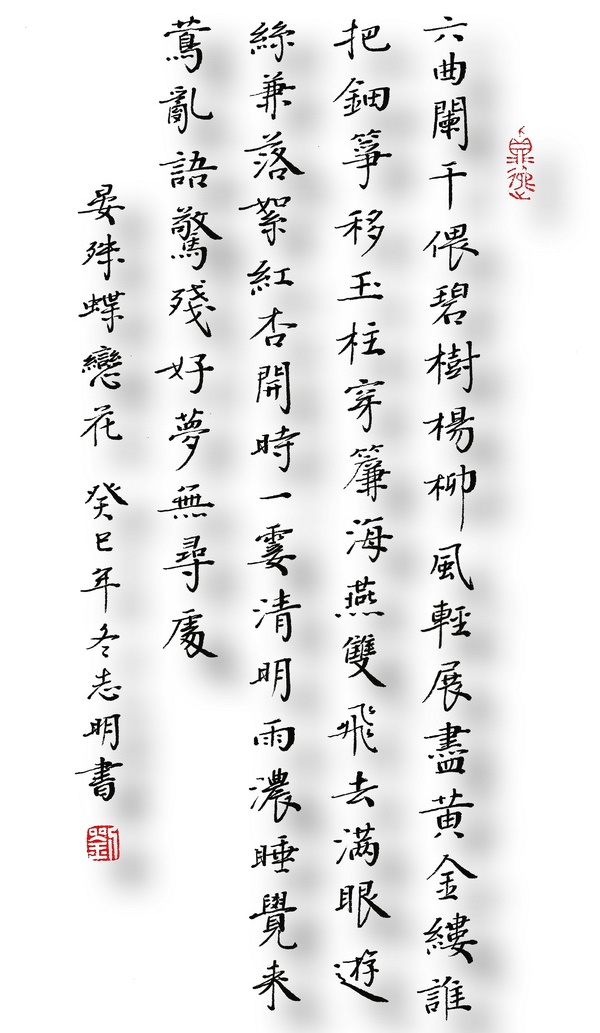 六曲闌干偎碧樹楊柳風輕展盡黃金縷誰
把鈿箏移玉柱穿簾海燕雙飛去滿眼遊
絲兼落絮紅杏開時一霎清明雨濃睡覺来
鶯亂語驚殘好夢無尋處
晏殊蝶戀花 癸巳年冬志明書
劉